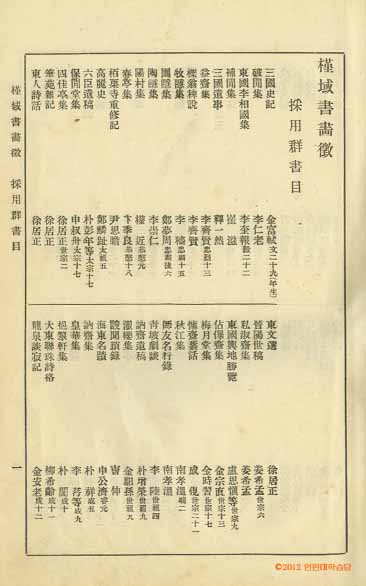 槿域書畵徵
採用群書目
三國史記 金富軾文二十九(年生)
破閑集 李仁老
東國李相國集 李奎報毅二十二
補閑集 崔滋
三國遺事 釋一然
益齋集 李齊賢忠烈十三
櫟翁稗說 李齊賢
牧隱集 李穡忠肅十五
圃隱集 鄭夢周忠肅後六
陶隱集 李崇仁
陽村集 權近恭愍元
春亭集 卞季良恭愍十八
栢栗寺重修記 尹思
高麗史 鄭麟趾太祖五
六臣遺稿 朴彭年等太宗十七
保閒堂集 申叔舟太宗十七
四佳亭集 徐居正世宗二
筆苑雜記 徐居正
東人詩話 徐居正
東文選 徐居正
晉陽世稿 姜希孟世宗六
私淑齋集 姜希孟
東國輿地勝覽 盧思愼等世宗九
佔畢齋集 金宗直世宗十三
梅月堂集 金時習世宗十七
慵齋叢話 成俔世宗二十一
秋江集 南孝溫端二
師友名行錄 南孝溫
靑坡劇談 李陸世祖四
訥齋遺稿 朴增榮世祖九
濯纓集 金馹孫世祖九
謏聞瑣錄 曹伸
海東名蹟 申公濟睿元
訥齋集 朴祥成五
皇華集 李荇等成九
挹翠軒集 朴誾成十
大東聯珠詩格 柳希齡成十一
龍泉談寂記 金安老成十二
槿域書畵徵 採用群書目
一
©2012 인린대학습당